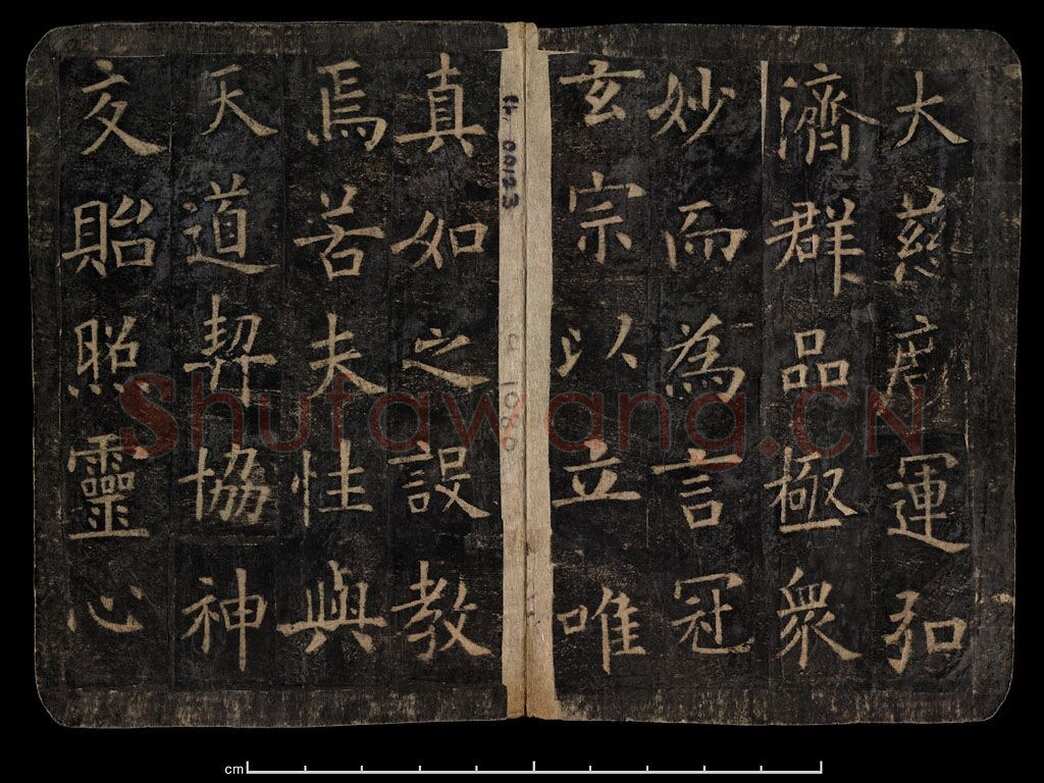 大慈廣運弘
濟群品極衆
妙而為言冠
玄宗以立唯
真如之設教
焉若夫性與
天道契協神
交貽照靈心
Shufawang.CN
cm